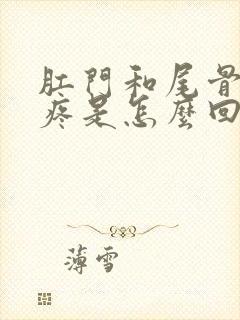 肛門和尾骨
疼是怎麼回
薄雪